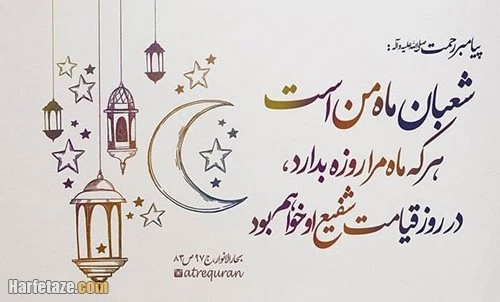 پیامبر رحمت صلی‌الله‌علیه‌وآله:
شعبان ماه من است
هر که ماه مرا روزه بدارد،
در روز قیامت شفیع او خواهم بود
بحارالانوار، ج ۹۷ ص ۸۳
atrequran
Harfetaze.com